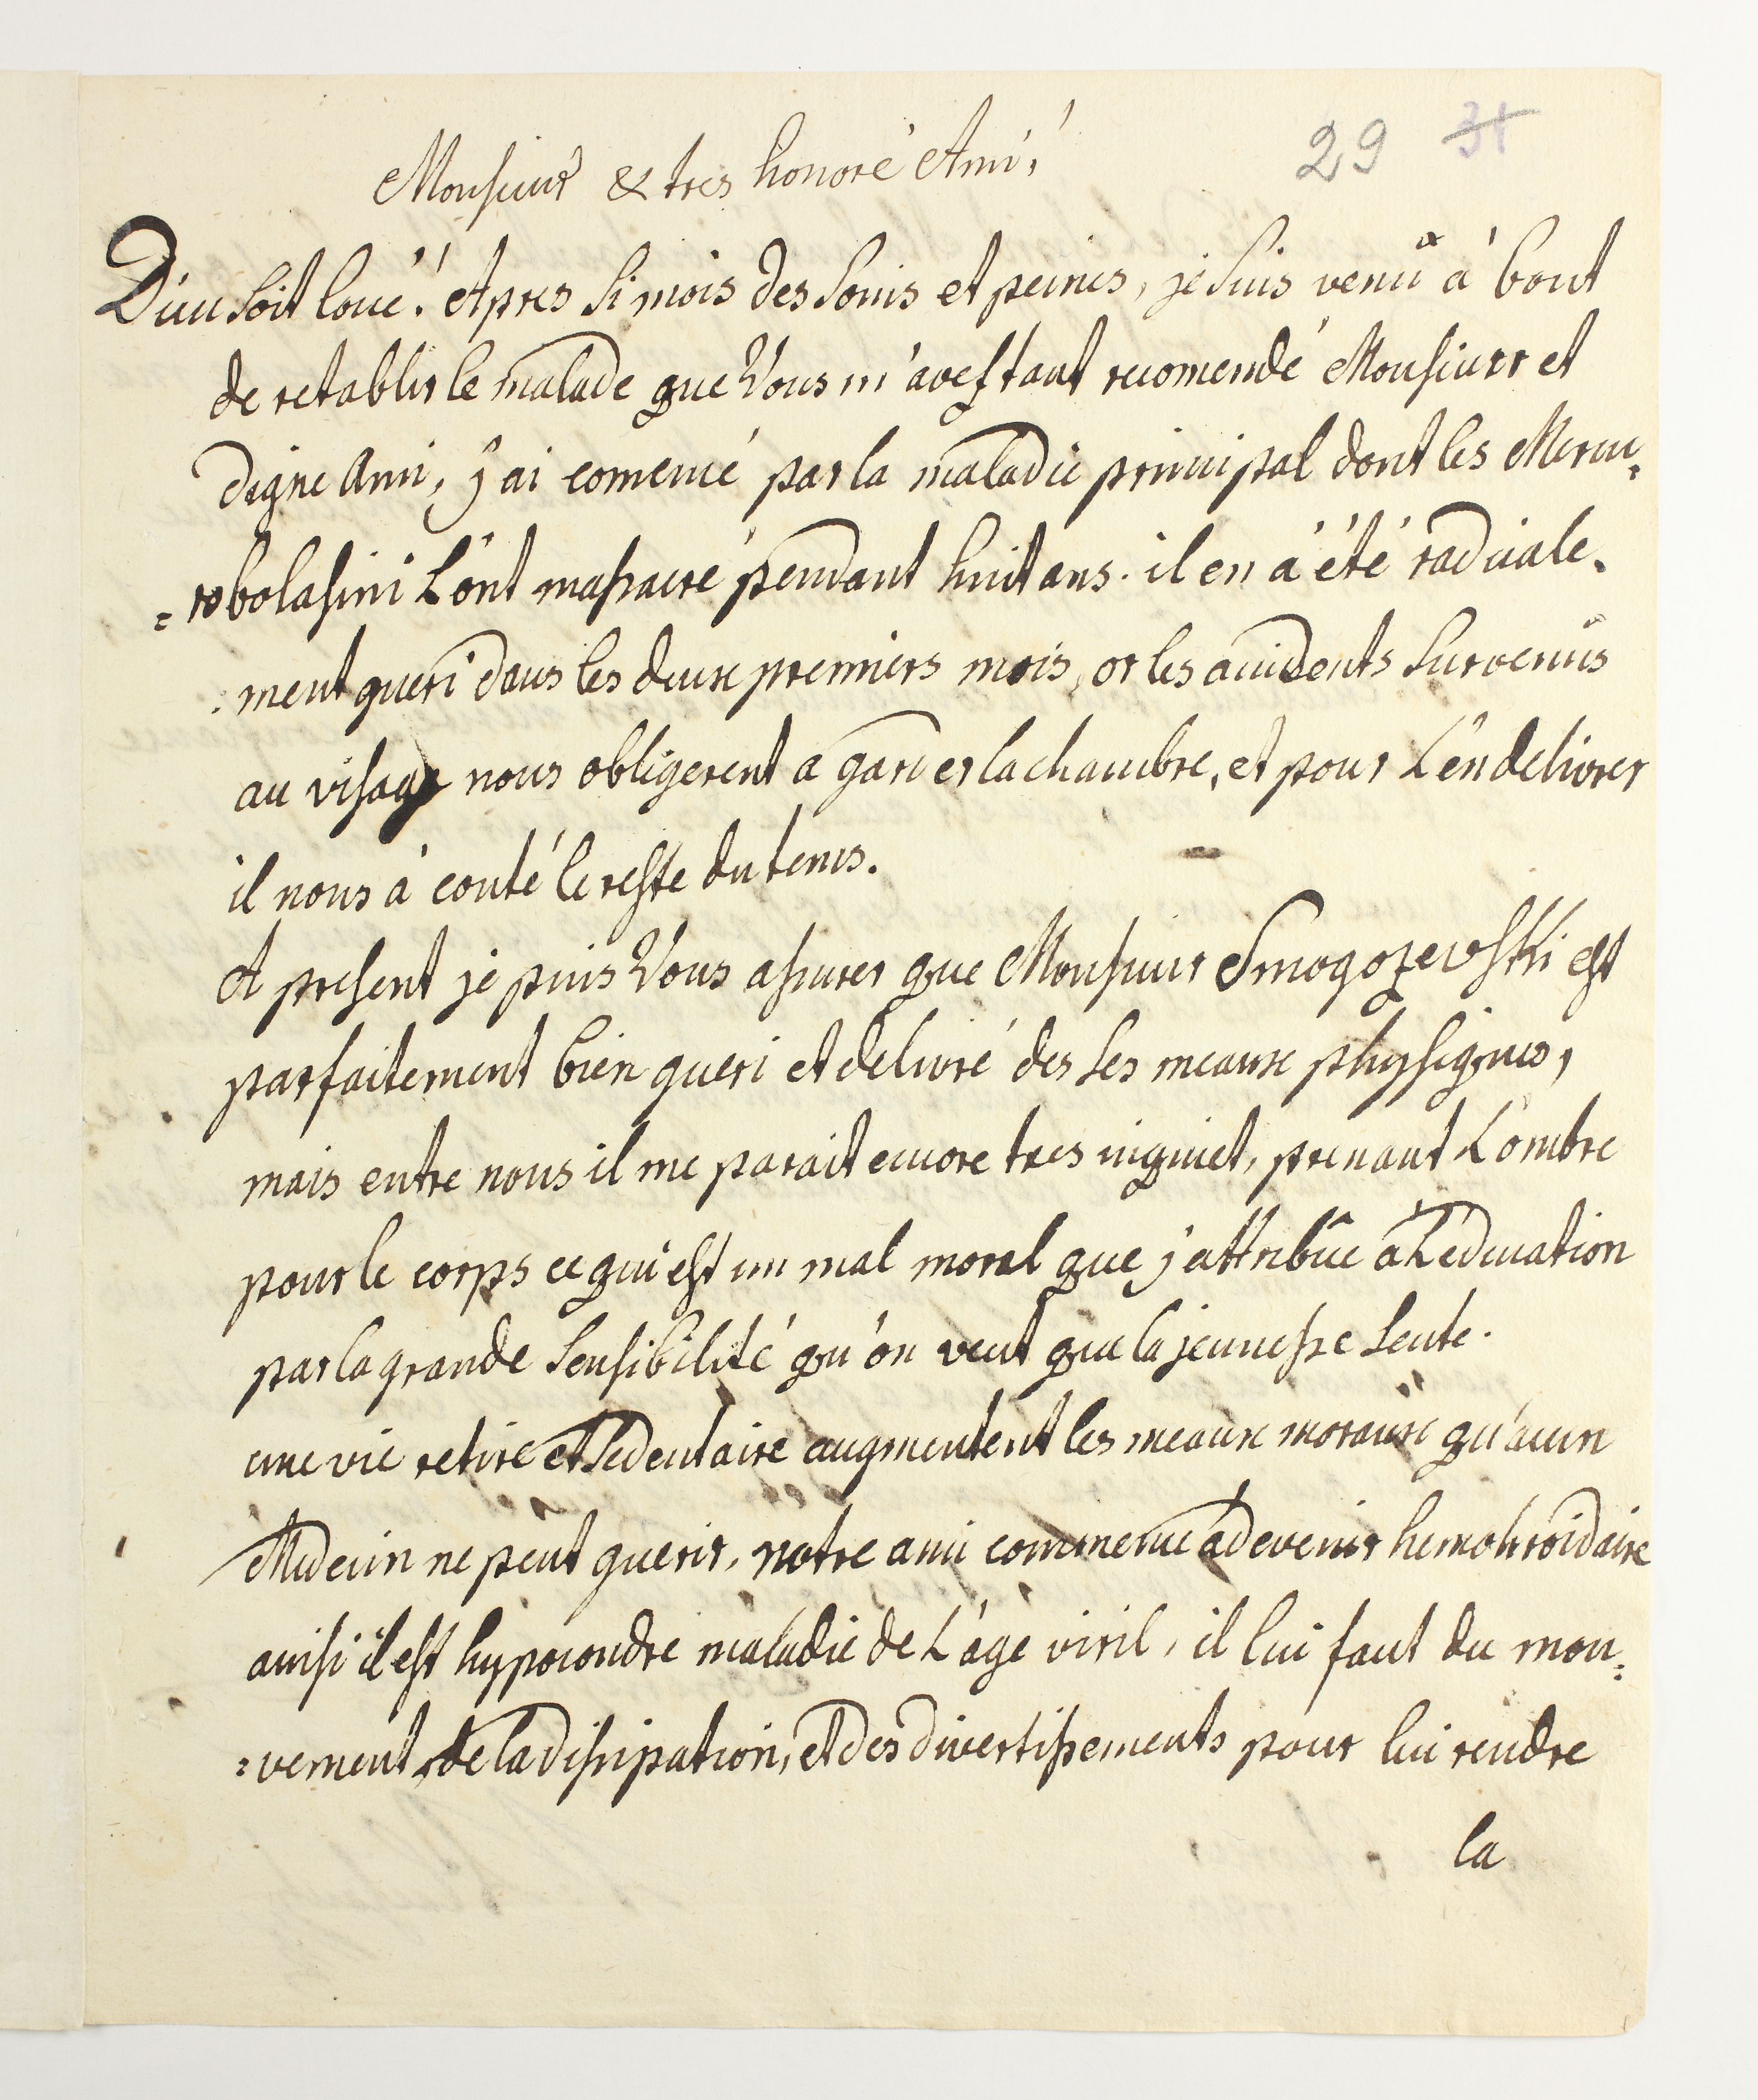 29 31
Monsieur & tres honoré Ami!
Dieu soit loué! Apres si mois des soins et peines, je suis venû à bout
de retablir le malade que Vous m'avez tant recomendé Monsieur et
digne Ami, j'ai comencé par la maladie principal dont les Mercu=
=robolasini L'ont massacré pendant huit ans. il en à été radicale.
:ment gueri dans les deux premiers mois, or les accidents survenûs
au visage nous obligerent a garder la chambre, et pour L'en delivrer
il nous à couté le reste du tems.
A present je puis Vous assurer que Monsieur Smogozewski est
parfaitement bien gueri et delivré des ses meaux physiques,
mais entre nous il me parait encore tres inquiet, prenant L'ombre
pour le corps ce qui est un mal moral que j'attribûe à L'education
par la grande sensibilité qu'on veut que la jeunesse sente.
une vie retire et sedentaire augmentent les meaux moraux qu'aucun
Medecin ne peut guerir, notre ami commence à devenir hemohroidaire
ainsi il est hypocondre maladie de L'age viril, il lui faut du mou=
=vement, de la dissipation, et des divertissements pour lui rendre
la